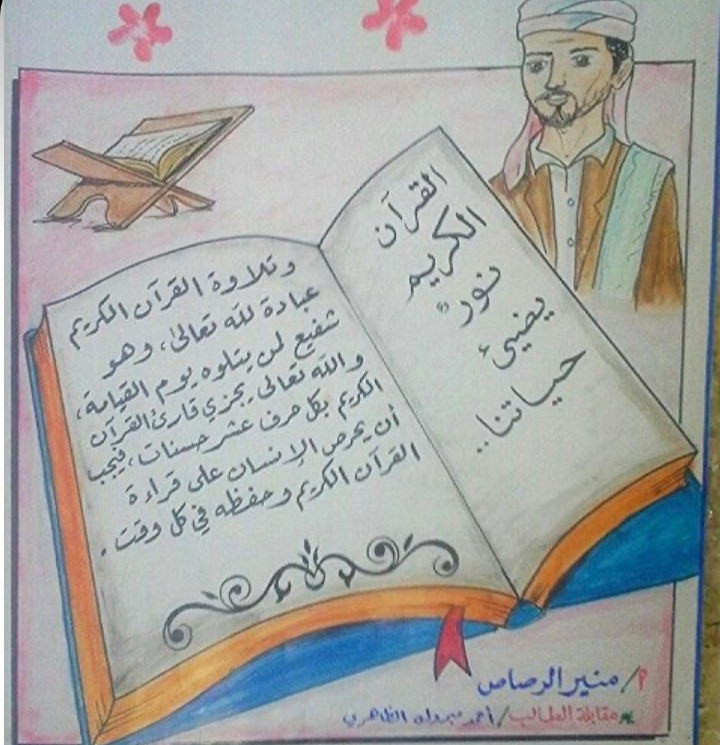 القرآن
الكريم
نورٌ
يضيئ
حياتنا..
وتلاوة القرآن الكريم
عبادة لله تعالى، وهو
شفيع لمن يتلوه يوم القيامة،
والله تعالى يجزي قارئ القرآن
الكريم بكل حرف عشر حسنات، فيجب
أن يحرص الإنسان على قراءة
القرآن الكريم وحفظه في كل وقت.
م/ منير الرصاص
مقابلة الطالب/ أحمد الظاهري